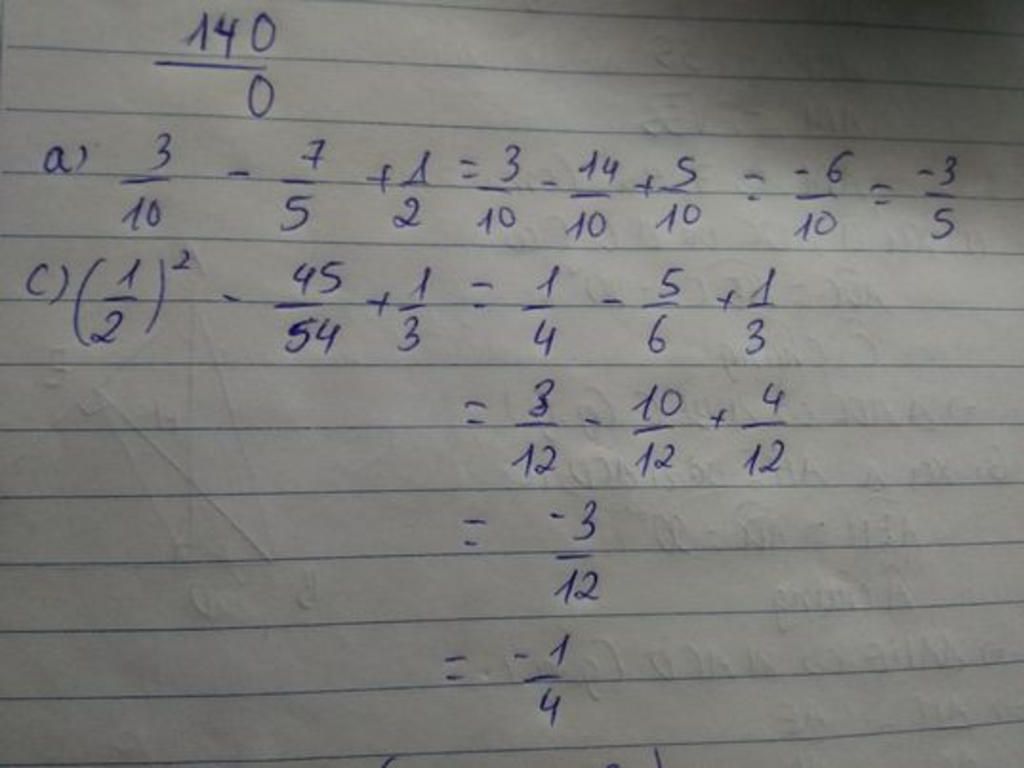 140
0
a) 3/10 - 7/5 + 1/2 = 3/10 - 14/10 + 5/10 = -6/10 = -3/5
C) (1/2)² - 45/54 + 1/3 = 1/4 - 5/6 + 1/3
= 3/12 - 10/12 + 4/12
= -3/12
= -1/4